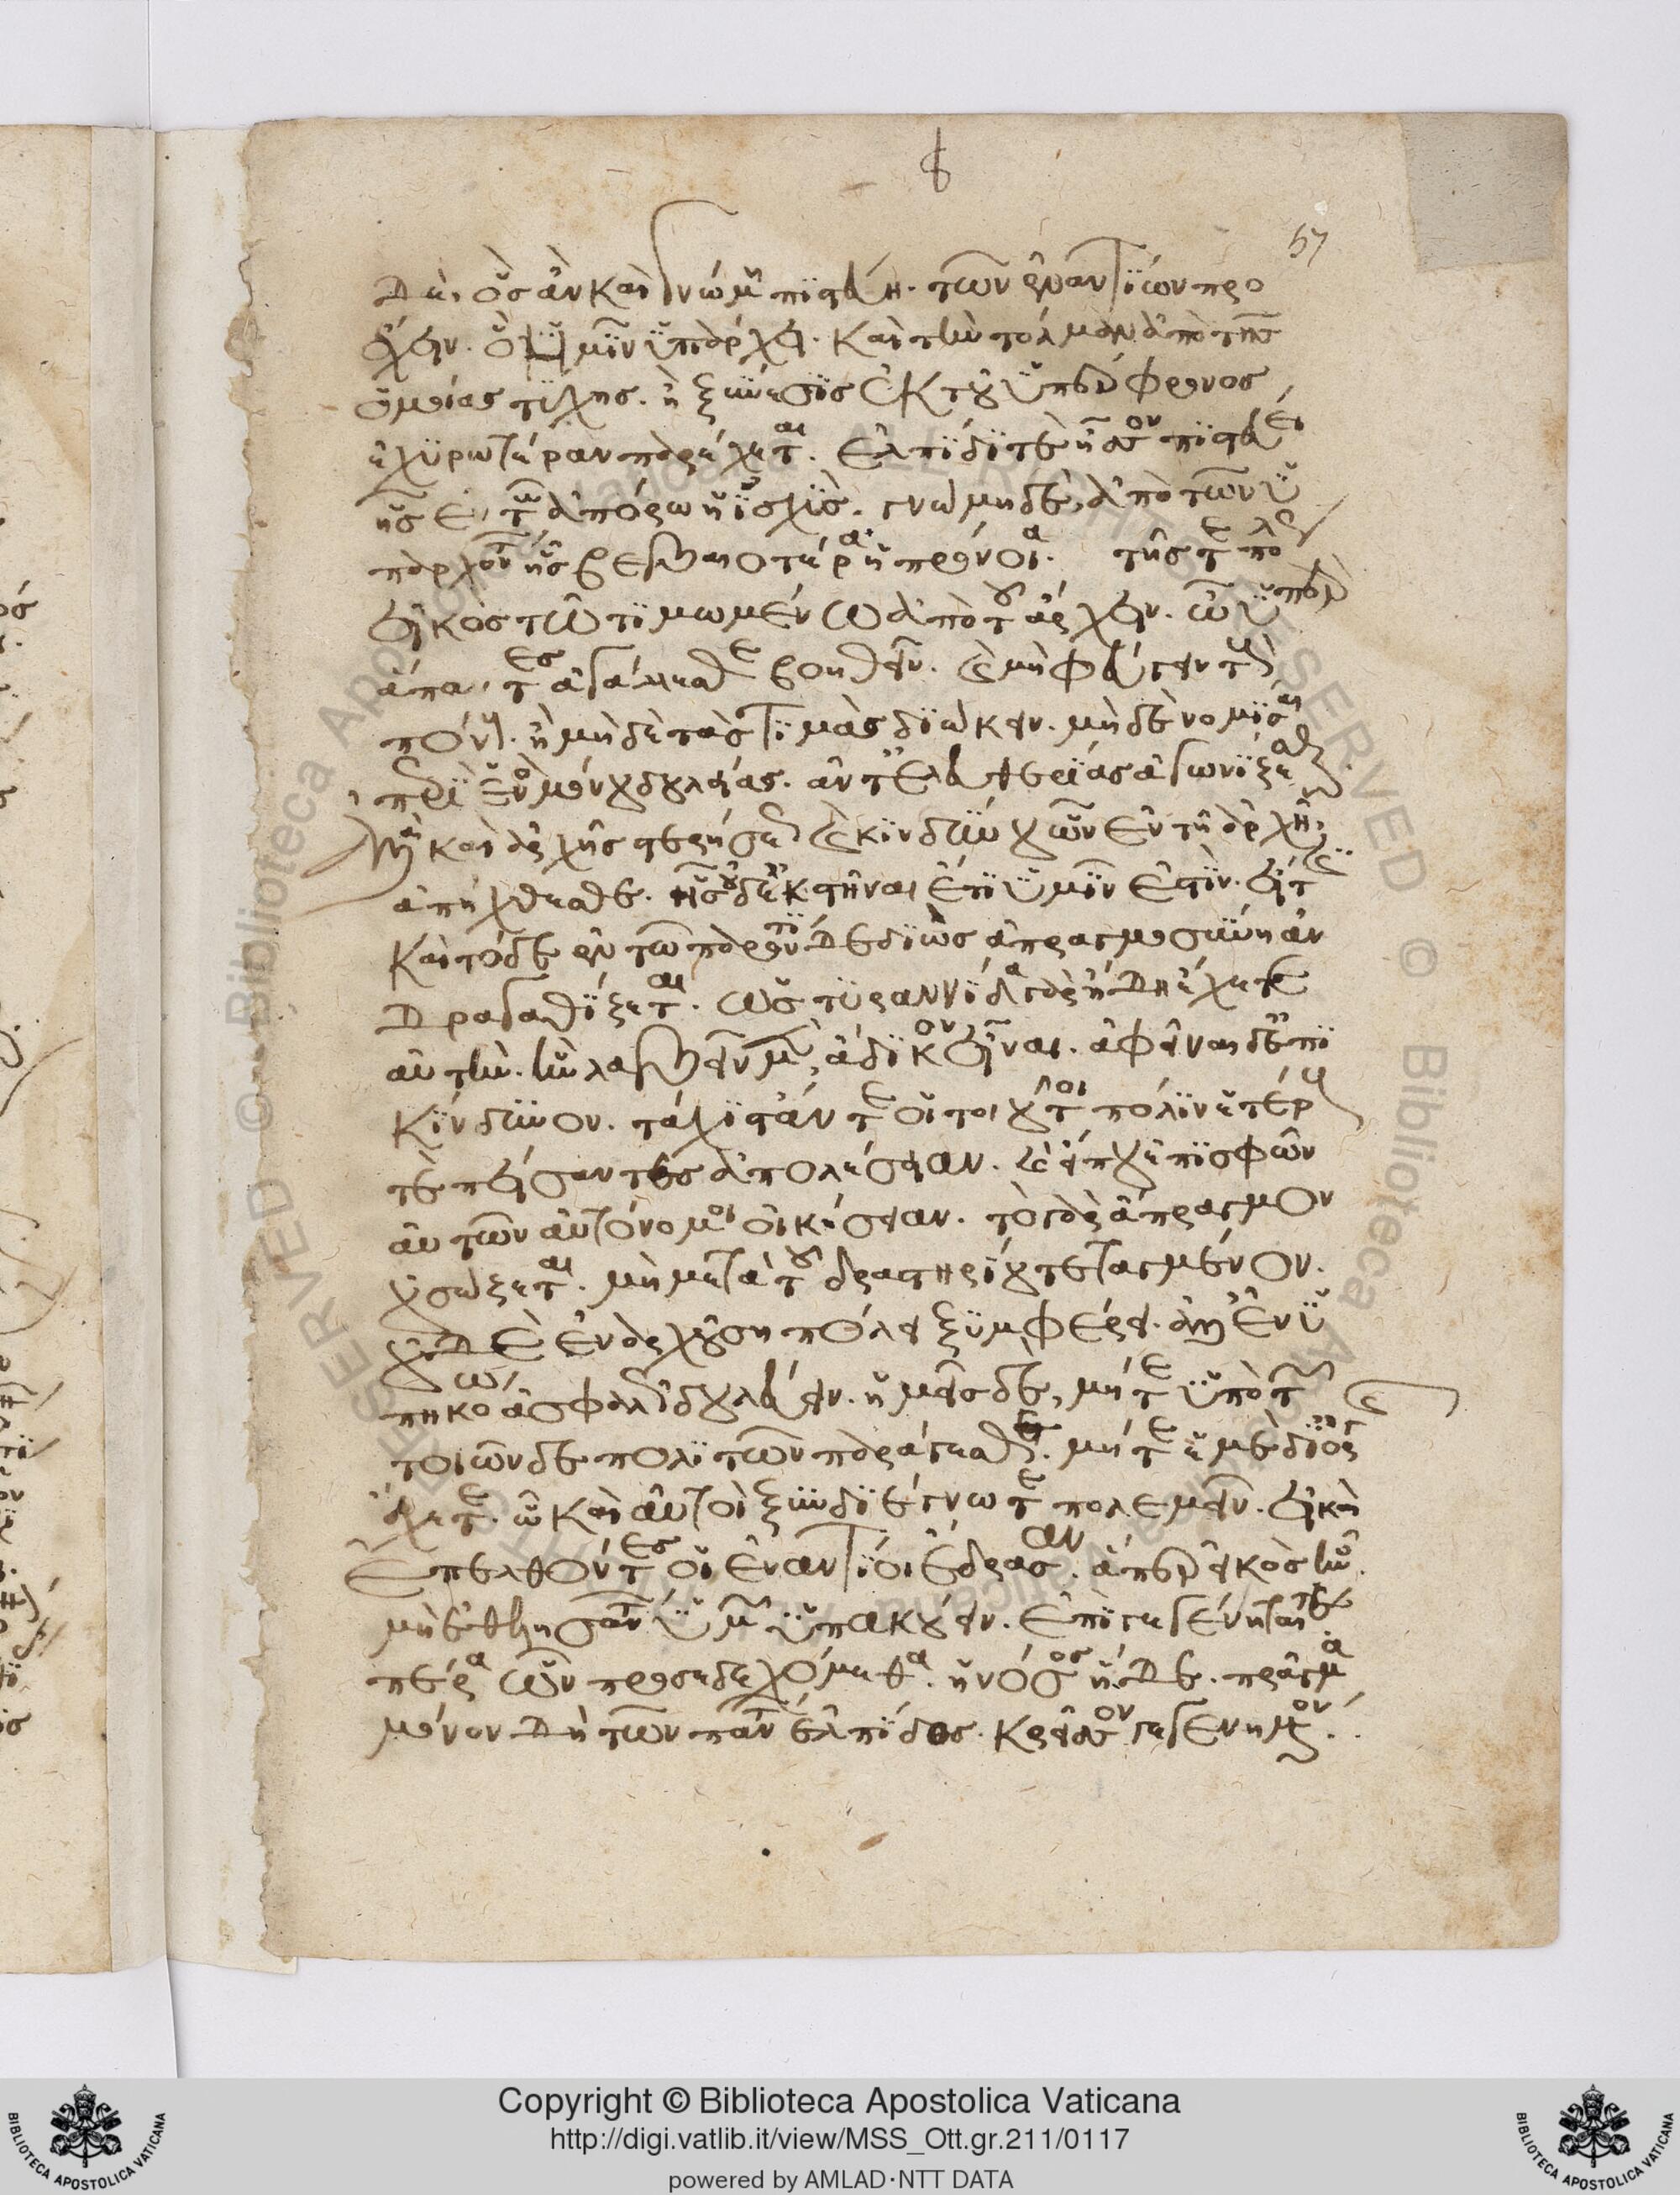 57
δὲ, ὃς ἂν καὶ γνώμῃ πιστεύη. τῶν ἐναντίων προ
έχειν. ὃ ἡμῖν ὑπάρχει. καὶ τὴν τόλμαν ἀπὸ τῆς
ὁμοίας τύχης. ἡ ξύνεσις ἐκ τοῦ ὑπέρφρονος
ἐχυρωτέραν παρέχεται. ἐλπίδι τὲ ἧσσον πιστεύει
ἧς ἐν τῶ ἀπόρω ἡ ἰσχὺς. γνώμη δὲ, ἀπὸ τῶν ὑ
παρχόντων ἧς βεβαιοτέρα ἡ πρόνοια. τῆς τε πόλεως
εἰκὸς τῶ τιμωμένω ἀπὸ τοῦ ἄρχειν. ὧ ὑπὲρ
ἅπαντες ἀγάλλεσθε βοηθεῖν. καὶ μὴ φεύγειν τοὺς
πόνους. ἢ μηδὲ τὰς τιμὰς διώκειν. μηδὲ νομίσαι
περὶ ἑνὸς μόνου δουλείας. ἀντ' ἐλευθερίας ἀγωνίζεσθαι.
ἀλλὰ καὶ ἀρχῆς στερήσεως καὶ κινδύνου ὧν ἐν τῆ ἀρχῆ
ἀπήχθεσθε. ἧς οὐδ' ἐκστῆναι ἔτι ὑμῖν ἔστιν. εἴ τις
καὶ τόδε ἐν τῶ παρόντι δεδιὼς ἀπραγμοσύνη ἀν
δραγαθίζεται. ὡς τυραννίδα γὰρ ἤδη ἔχετε
αὐτὴν. ἣν λαβεῖν μὲν, ἄδικον εἶναι. ἀφεῖναι δ' ἐπι
κίνδυνον. τάχιστ' ἄν τε οἱ τοιοῦτοι πόλιν ἑτέρους
τὲ πείσαντες ἀπολέσειαν. καὶ εἴ που ἐπὶ σφῶν
αὐτῶν αὐτόνομοι οἰκήσειαν. τὸ γὰρ ἄπραγμον
οὐ σώζεται. μὴ μετὰ τοῦ δραστηρίου τεταγμένον.
οὐδὲ ἐν ἀρχούση πόλει ξυμφέρει. ἀλλ' ἐν ὑ
πηκόω ἀσφαλῶς δουλεύειν. ὑμεῖς δὲ, μήτε ὑπὸ τῶν
τοιῶνδε πολιτῶν παράγεσθε. μήτε ἐμὲ δι' ὀργῆς
ἔχετε. ὧ καὶ αὐτοὶ ξυνδιέγνωτε πολεμεῖν. εἰ καὶ
ἐπελθόντες οἱ ἐναντίοι ἔδρασαν. ἅπερ εἰκὸς ἦν.
μὴ ἐθελησάντων ὑμῶν ὑπακούειν. ἐπιγεγένηταί τε
πέρα ὧν προσεδεχόμεθα. ἡ νόσος ἥδε. πρᾶγμα
μόνον δὴ τῶν πάντων ἐλπίδος. κρεῖσσον γεγενημένον.
Copyright © Biblioteca Apostolica Vaticana
http://digi.vatlib.it/view/MSS_Ott.gr.211/0117
powered by AMLAD·NTT DATA